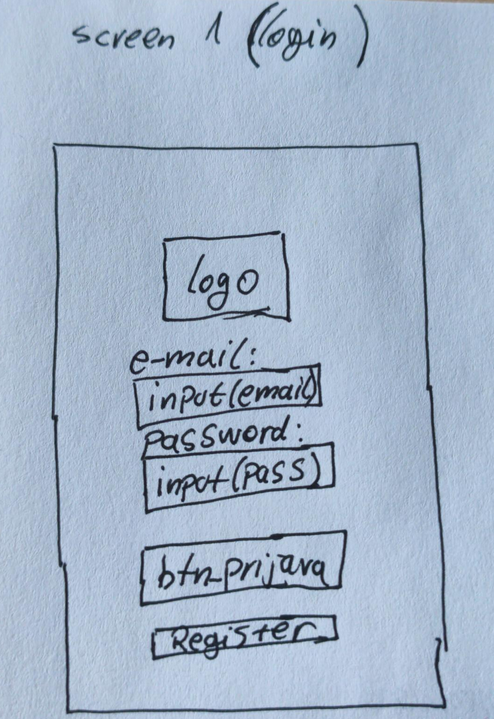 screen 1 (login)
logo
e-mail:
input(email)
password:
input(pass)
btn_prijava
Register